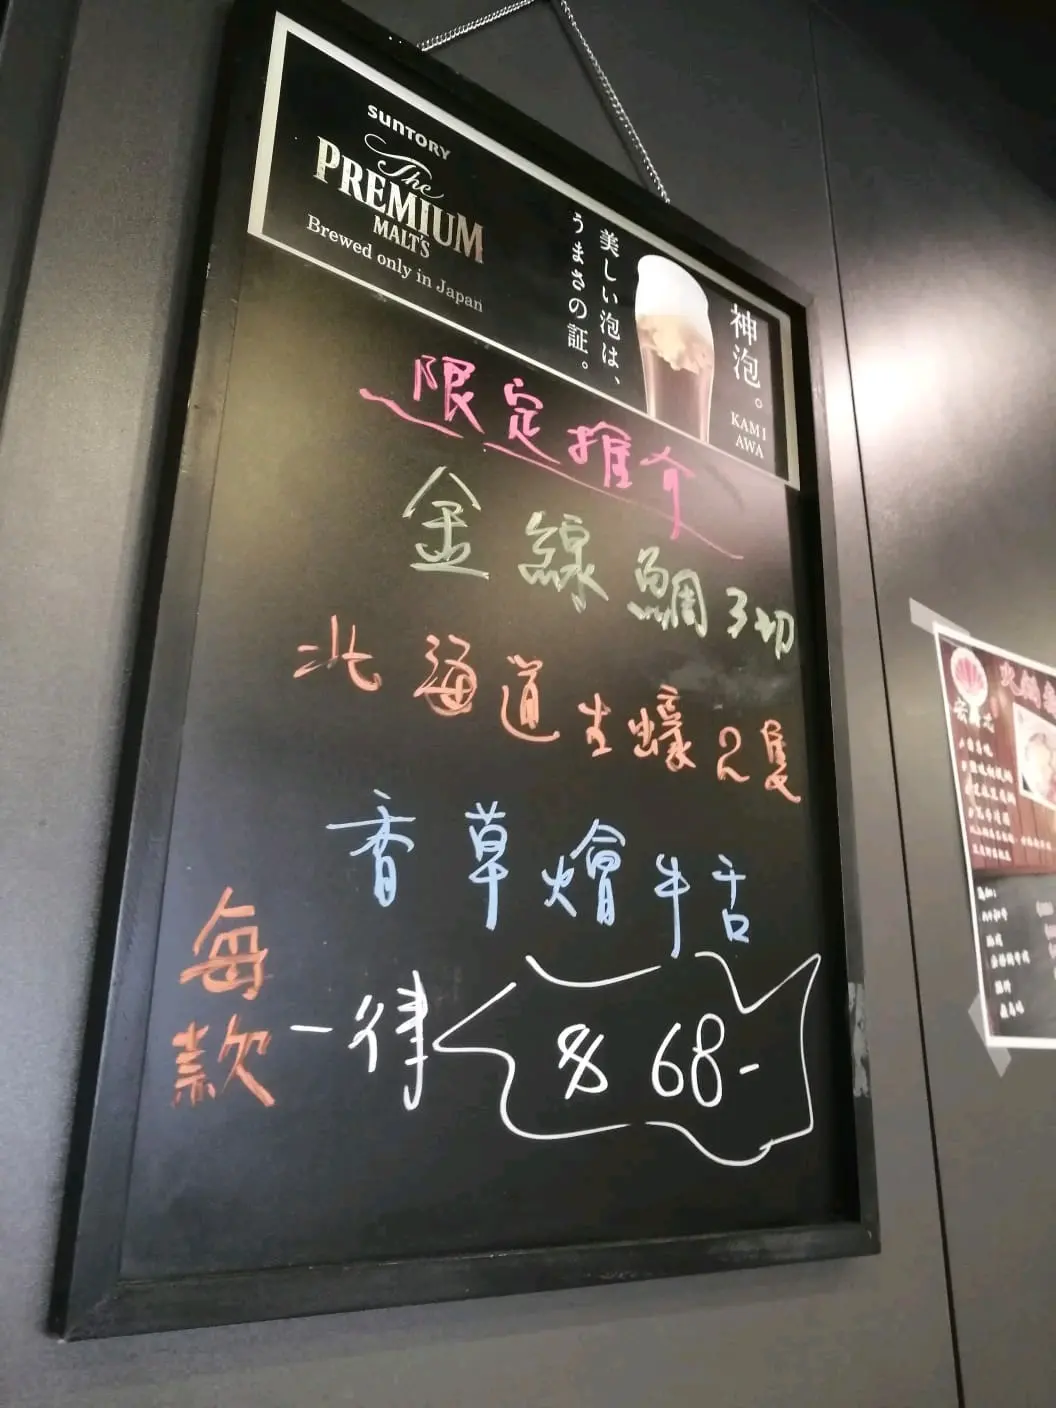 SUNTORY
The
PREMIUM
MALT'S
Brewed only in Japan
神泡。
KAMI
AWA
美しい泡は、
うまさの証。
限定推介
金線鯛3切
北海道生蠔2隻
香草燴牛舌
每款一律
$68-